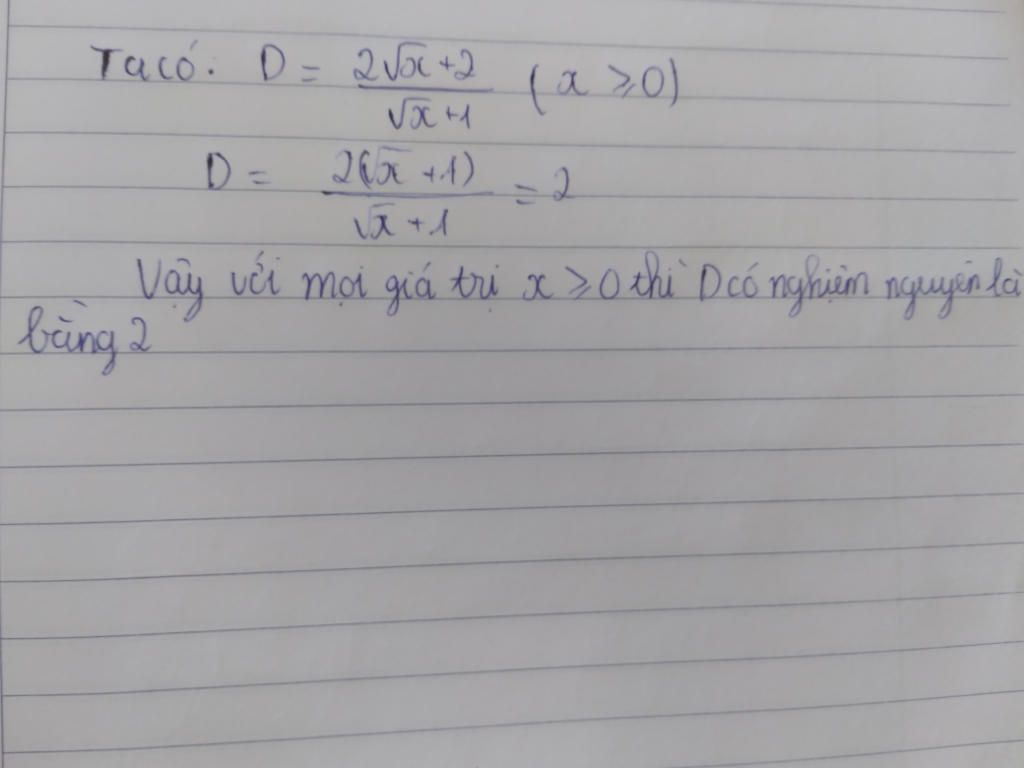 Ta có: D = 2√x+2 / √x+1 (x ≥ 0)
D = 2(√x +1) / √x + 1 = 2
Vậy với mọi giá trị x ≥ 0 thì D có nghiệm nguyên là
bằng 2